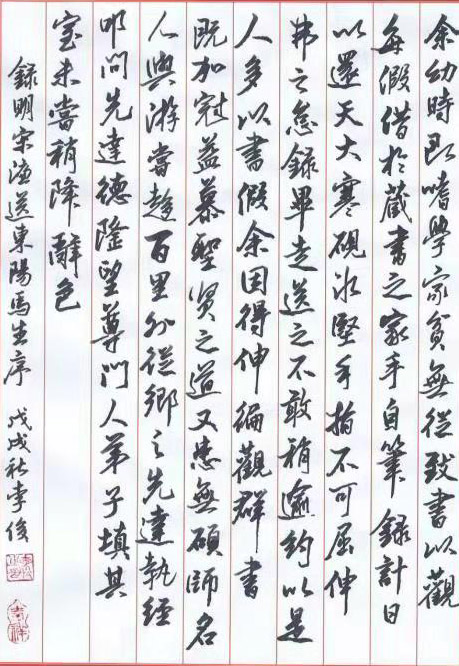 余幼時即嗜學家貧無從致書以觀
每假借於藏書之家手自筆錄計日
以還天大寒硯冰堅手指不可屈伸
弗之怠錄畢走送之不敢稍逾約以是
人多以書假余因得伸徧觀群書
既加冠益慕聖贤之道又患無碩師名
人與游嘗趨百里外從鄉之先達執經
叩問先達德隆望尊門人弟子填其
室未嘗稍降辭色
錄明宋濂送東陽馬生序 戊戌秋李俊